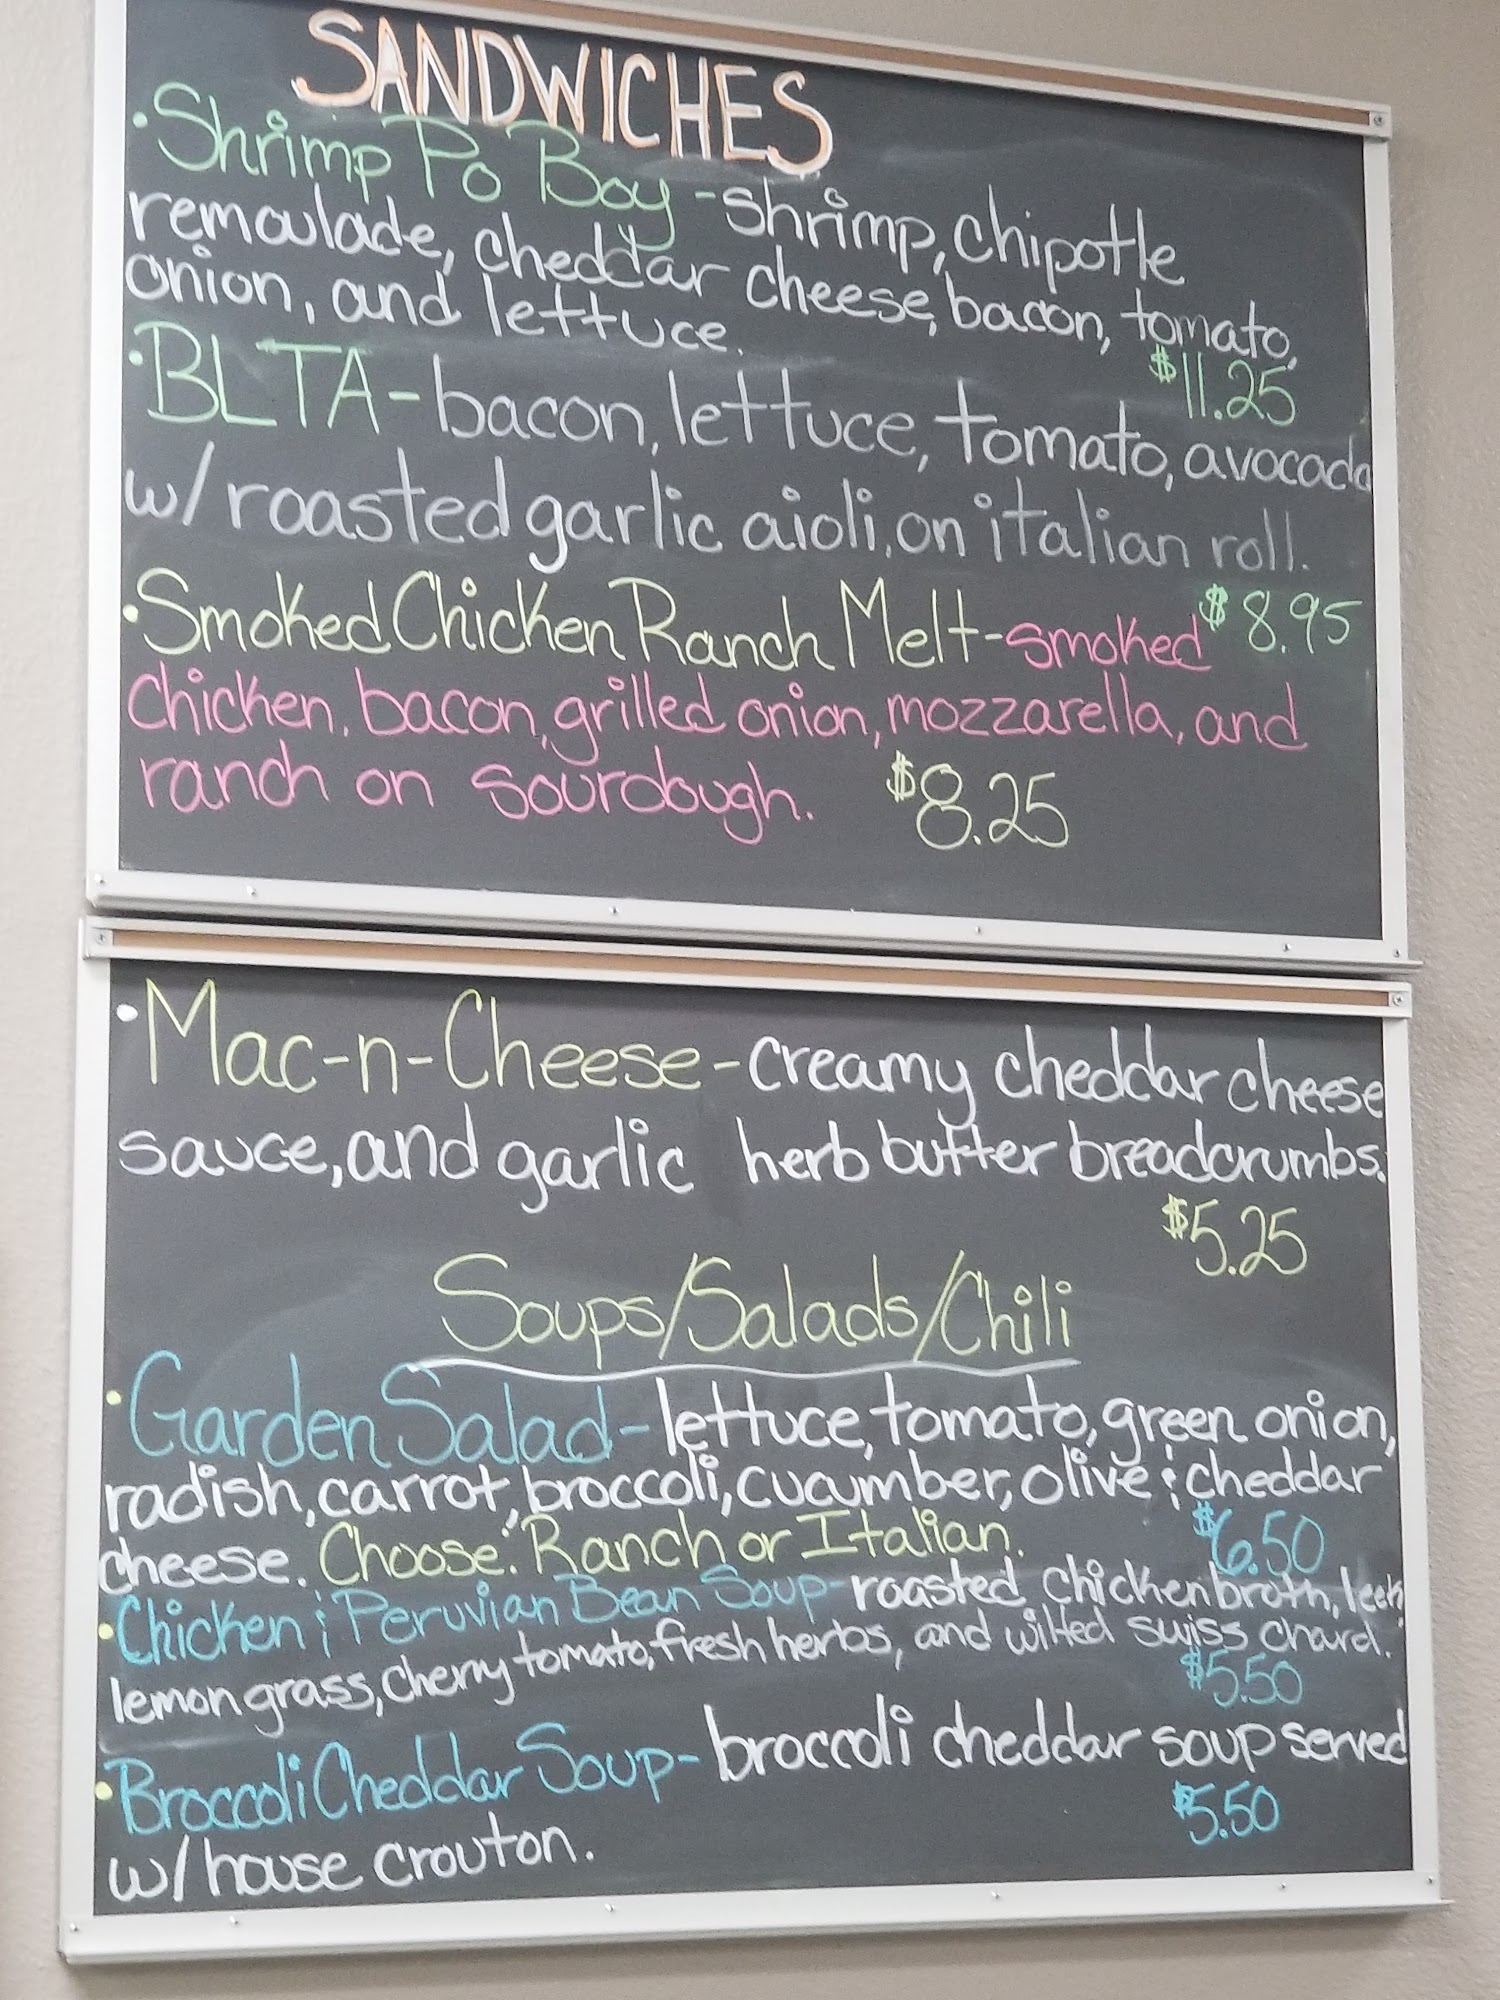 SANDWICHES
• Shrimp Po Boy - shrimp, chipotle
remoulade, cheddar cheese, bacon, tomato,
onion, and lettuce.
$11.25
• BLTA - bacon, lettuce, tomato, avocado
w/ roasted garlic aioli, on italian roll.
$8.95
• Smoked Chicken Ranch Melt - smoked
chicken, bacon, grilled onion, mozzarella, and
ranch on sourdough. $8.25
• Mac-n-Cheese - creamy cheddar cheese
sauce, and garlic herb butter breadcrumbs.
$5.25
Soups/Salads/Chili
• Garden Salad - lettuce, tomato, green onion,
radish, carrot, broccoli, cucumber, olive & cheddar
cheese. Choose: Ranch or Italian. $6.50
• Chicken & Peruvian Bean Soup - roasted chicken broth, leek,
lemon grass, cherry tomato, fresh herbs, and wilted swiss chard.
$5.50
• Broccoli Cheddar Soup - broccoli cheddar soup served
w/ house crouton. $5.50